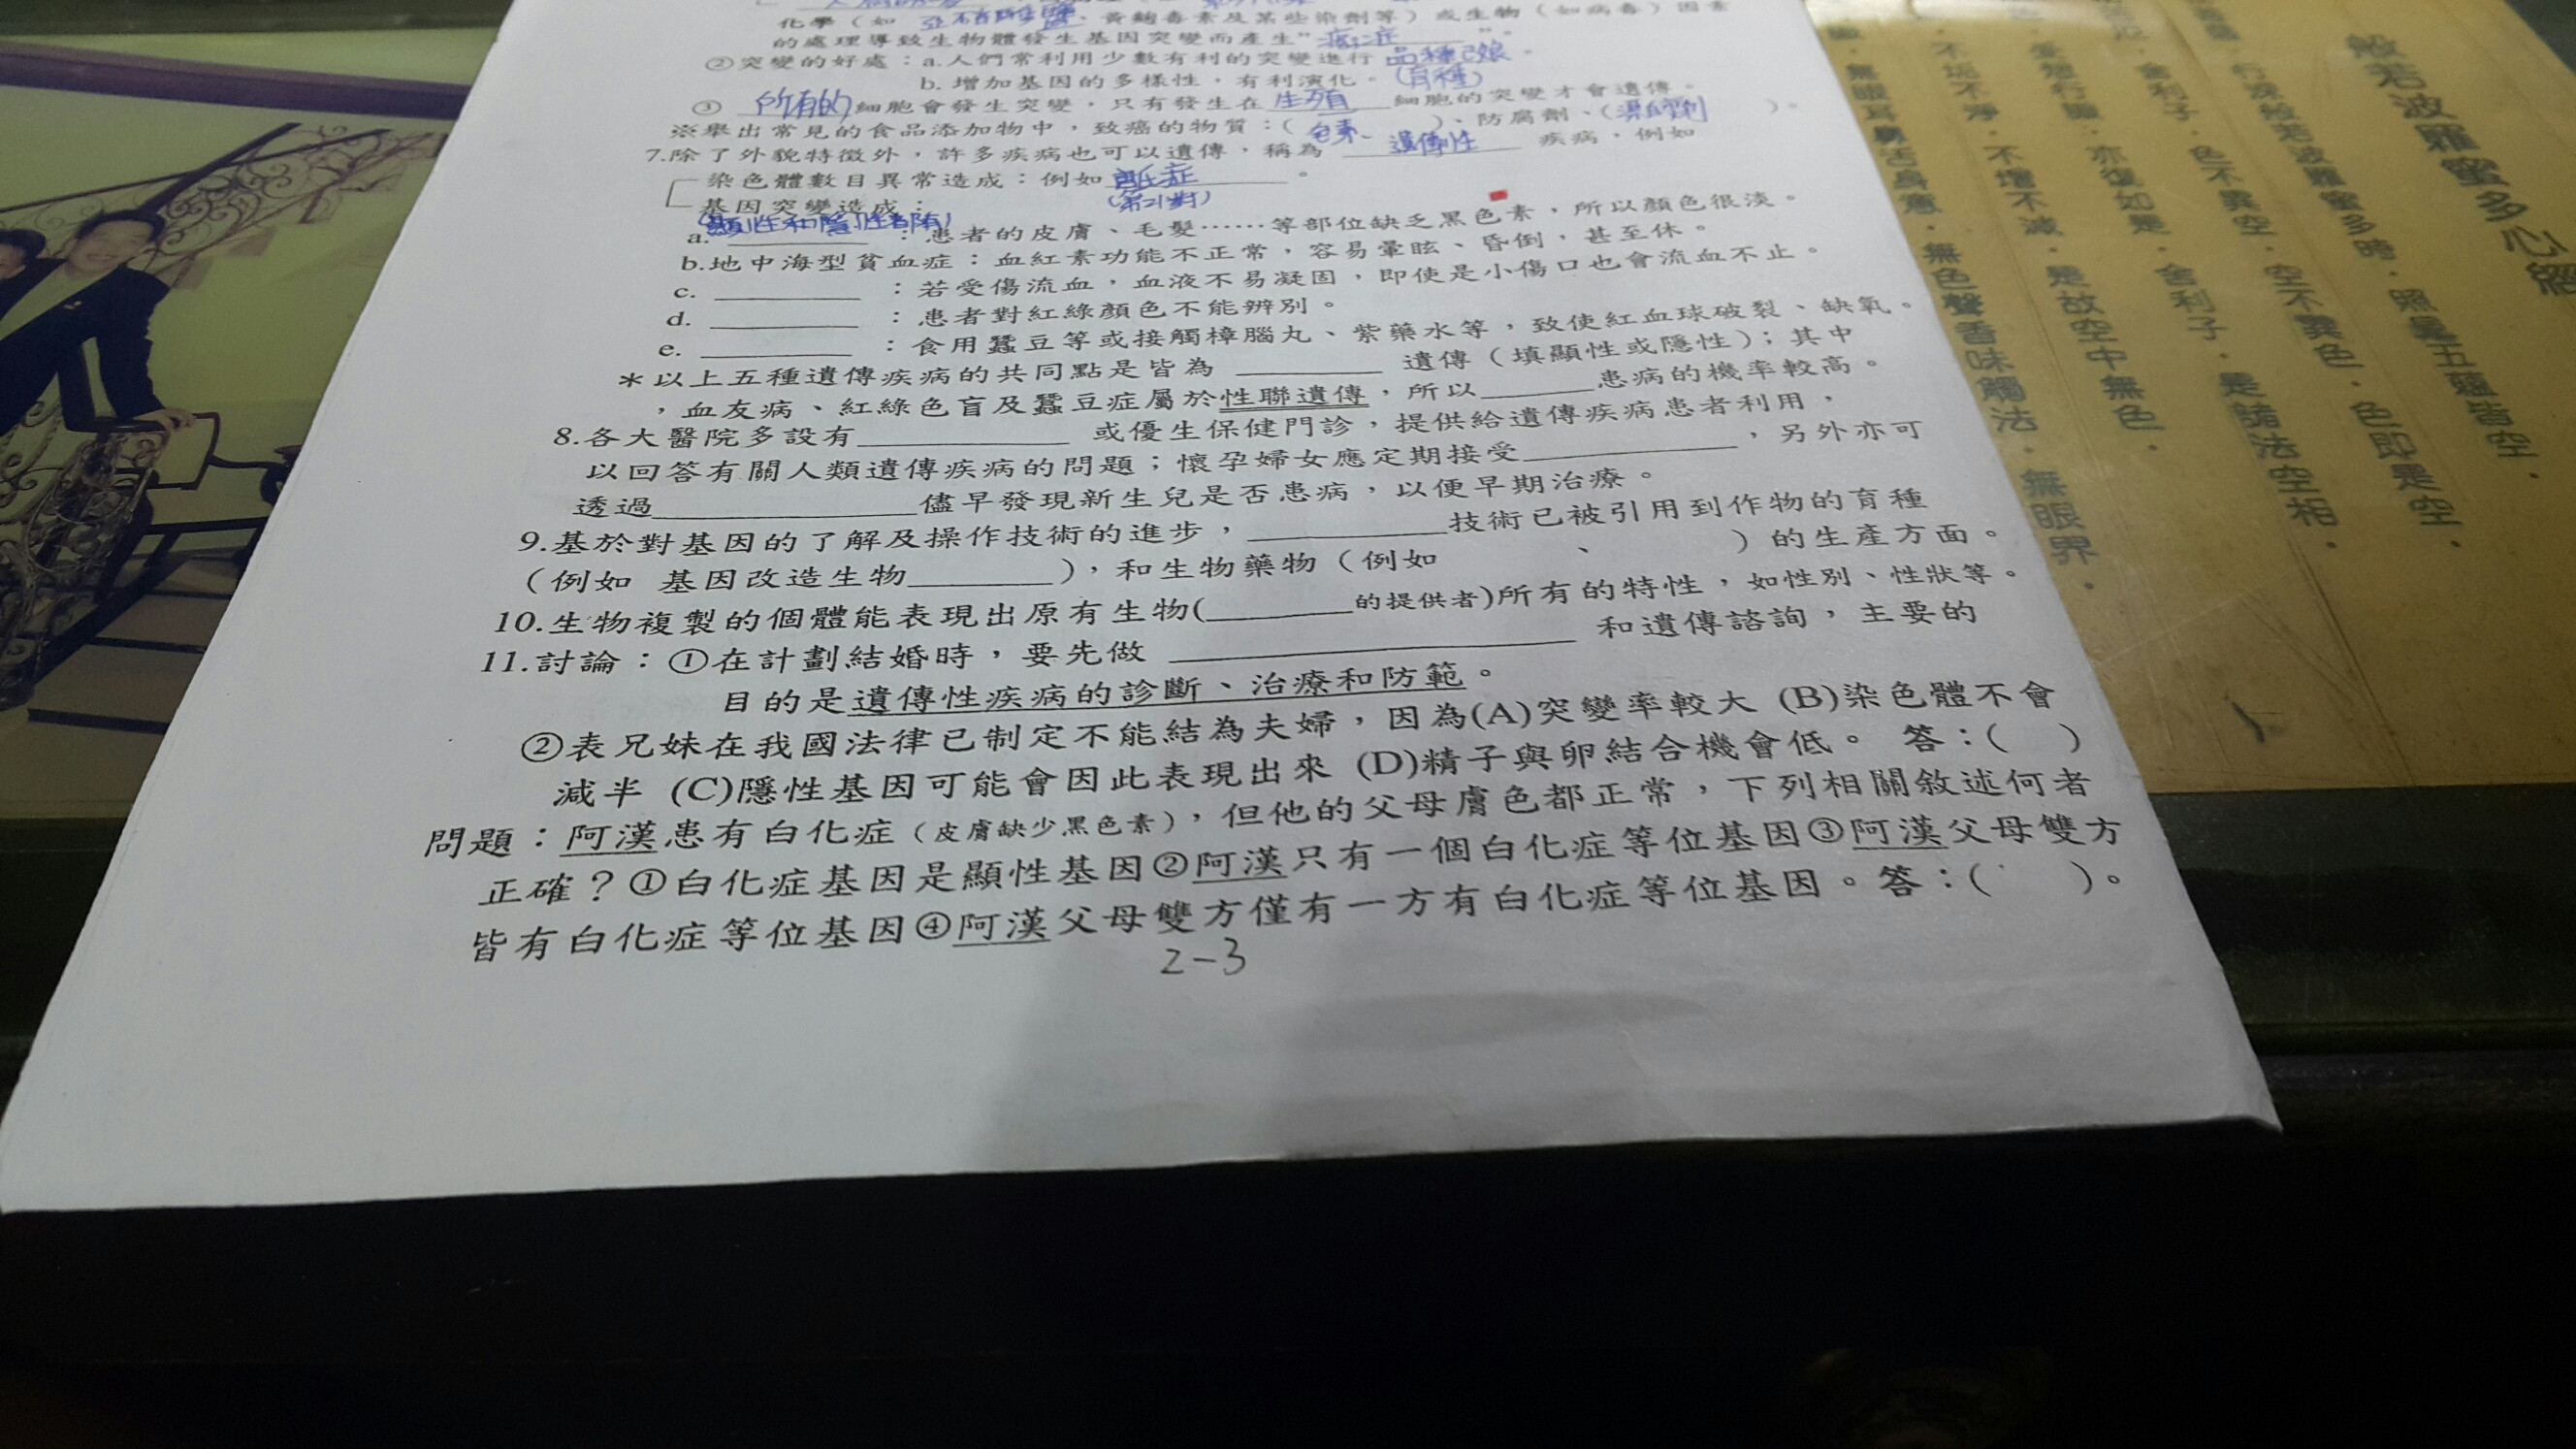 化學（如 亞硝酸鹽、黃麴毒素及某些染劑等）或生物（如病毒）因素
的處理導致生物體發生基因突變而產生"癌症"。
②突變的好處：a.人們常利用少數有利的突變進行品種改良。
b.增加基因的多樣性，有利演化。(育種)
③ 所有的細胞會發生突變，只有發生在生殖細胞的突變才會遺傳。
※舉出常見的食品添加物中，致癌的物質：(色素、)、防腐劑、( )。
7.除了外貌特徵外，許多疾病也可以遺傳，稱為 遺傳性 疾病，例如
染色體數目異常造成：例如 。
(第21對)
基因突變造成：
(顯性和隱性都有)
a. ：患者的皮膚、毛髮……等部位缺乏黑色素，所以顏色很淡。
b.地中海型貧血症：血紅素功能不正常，容易暈眩、昏倒，甚至休。
c. ：若受傷流血，血液不易凝固，即使是小傷口也會流血不止。
d. ：患者對紅綠顏色不能辨別。
e. ：食用蠶豆等或接觸樟腦丸、紫藥水等，致使紅血球破裂、缺氧。
＊以上五種遺傳疾病的共同點是皆為 遺傳（填顯性或隱性）；其中
，血友病、紅綠色盲及蠶豆症屬於性聯遺傳，所以 患病的機率較高。
8.各大醫院多設有 或優生保健門診，提供給遺傳疾病患者利用，
以回答有關人類遺傳疾病的問題；懷孕婦女應定期接受 ，另外亦可
透過 儘早發現新生兒是否患病，以便早期治療。
9.基於對基因的了解及操作技術的進步， 技術已被引用到作物的育種
（例如 基因改造生物 ），和生物藥物（例如 、 ）的生產方面。
10.生物複製的個體能表現出原有生物( 的提供者)所有的特性，如性別、性狀等。
11.討論：①在計劃結婚時，要先做 和遺傳諮詢，主要的
目的是遺傳性疾病的診斷、治療和防範。
②表兄妹在我國法律已制定不能結為夫婦，因為(A)突變率較大 (B)染色體不會
減半 (C)隱性基因可能會因此表現出來 (D)精子與卵結合機會低。 答：( )
問題：阿漢患有白化症（皮膚缺少黑色素），但他的父母膚色都正常，下列相關敘述何者
正確？①白化症基因是顯性基因②阿漢只有一個白化症等位基因③阿漢父母雙方
皆有白化症等位基因④阿漢父母雙方僅有一方有白化症等位基因。答：( )。
2-3
般若波羅蜜多心經
照見五蘊皆空．
行深般若波羅蜜多時．
空不異色．色即是空．
色不異空．
舍利子．是諸法空相．
亦復如是．
不垢不淨．不增不減．是故空中無色．
無眼耳鼻舌身意．無色聲香味觸法．無眼界．